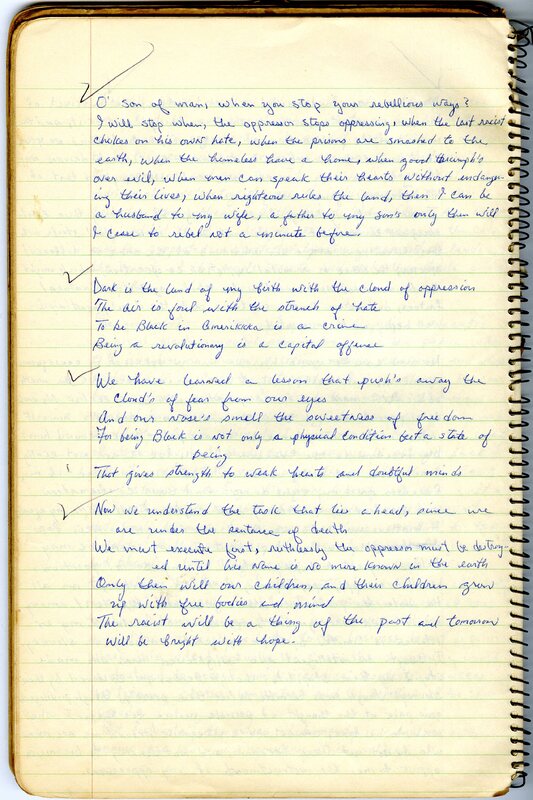 O' son of man, when you stop your rebellious ways?
I will stop when, the oppressor stops oppressing, when the last racist
chokes on his own hate, when the prisons are smashed to the
earth, when the homeless have a home, when good triumph's
over evil, when men can speak their hearts without endanger-
ing their lives, when righteous rules the land, then I can be
a husband to my wife, a father to my son's only then will
I cease to rebel not a minute before.
Dark is the land of my birth with the cloud of oppression
The air is foul with the strench of hate
To be Black in Amerikkka is a crime
Being a revolutionary is a capital offense
We have learned a lesson that push's away the
cloud's of fear from our eyes
And our nose's smell the sweetness of freedom
For being Black is not only a physical condition but a state of
being
That gives strength to weak hearts and doubtful minds
Now we understand the task that lies ahead, since we
are under the sentance of death
We must execute first, ruthlessly the oppressor must be destroy-
ed until his name is no more known in the earth
Only then will our children, and their children grow
up with free bodies and mind
The racist will be a thing of the past and tomorrow
will be bright with hope.